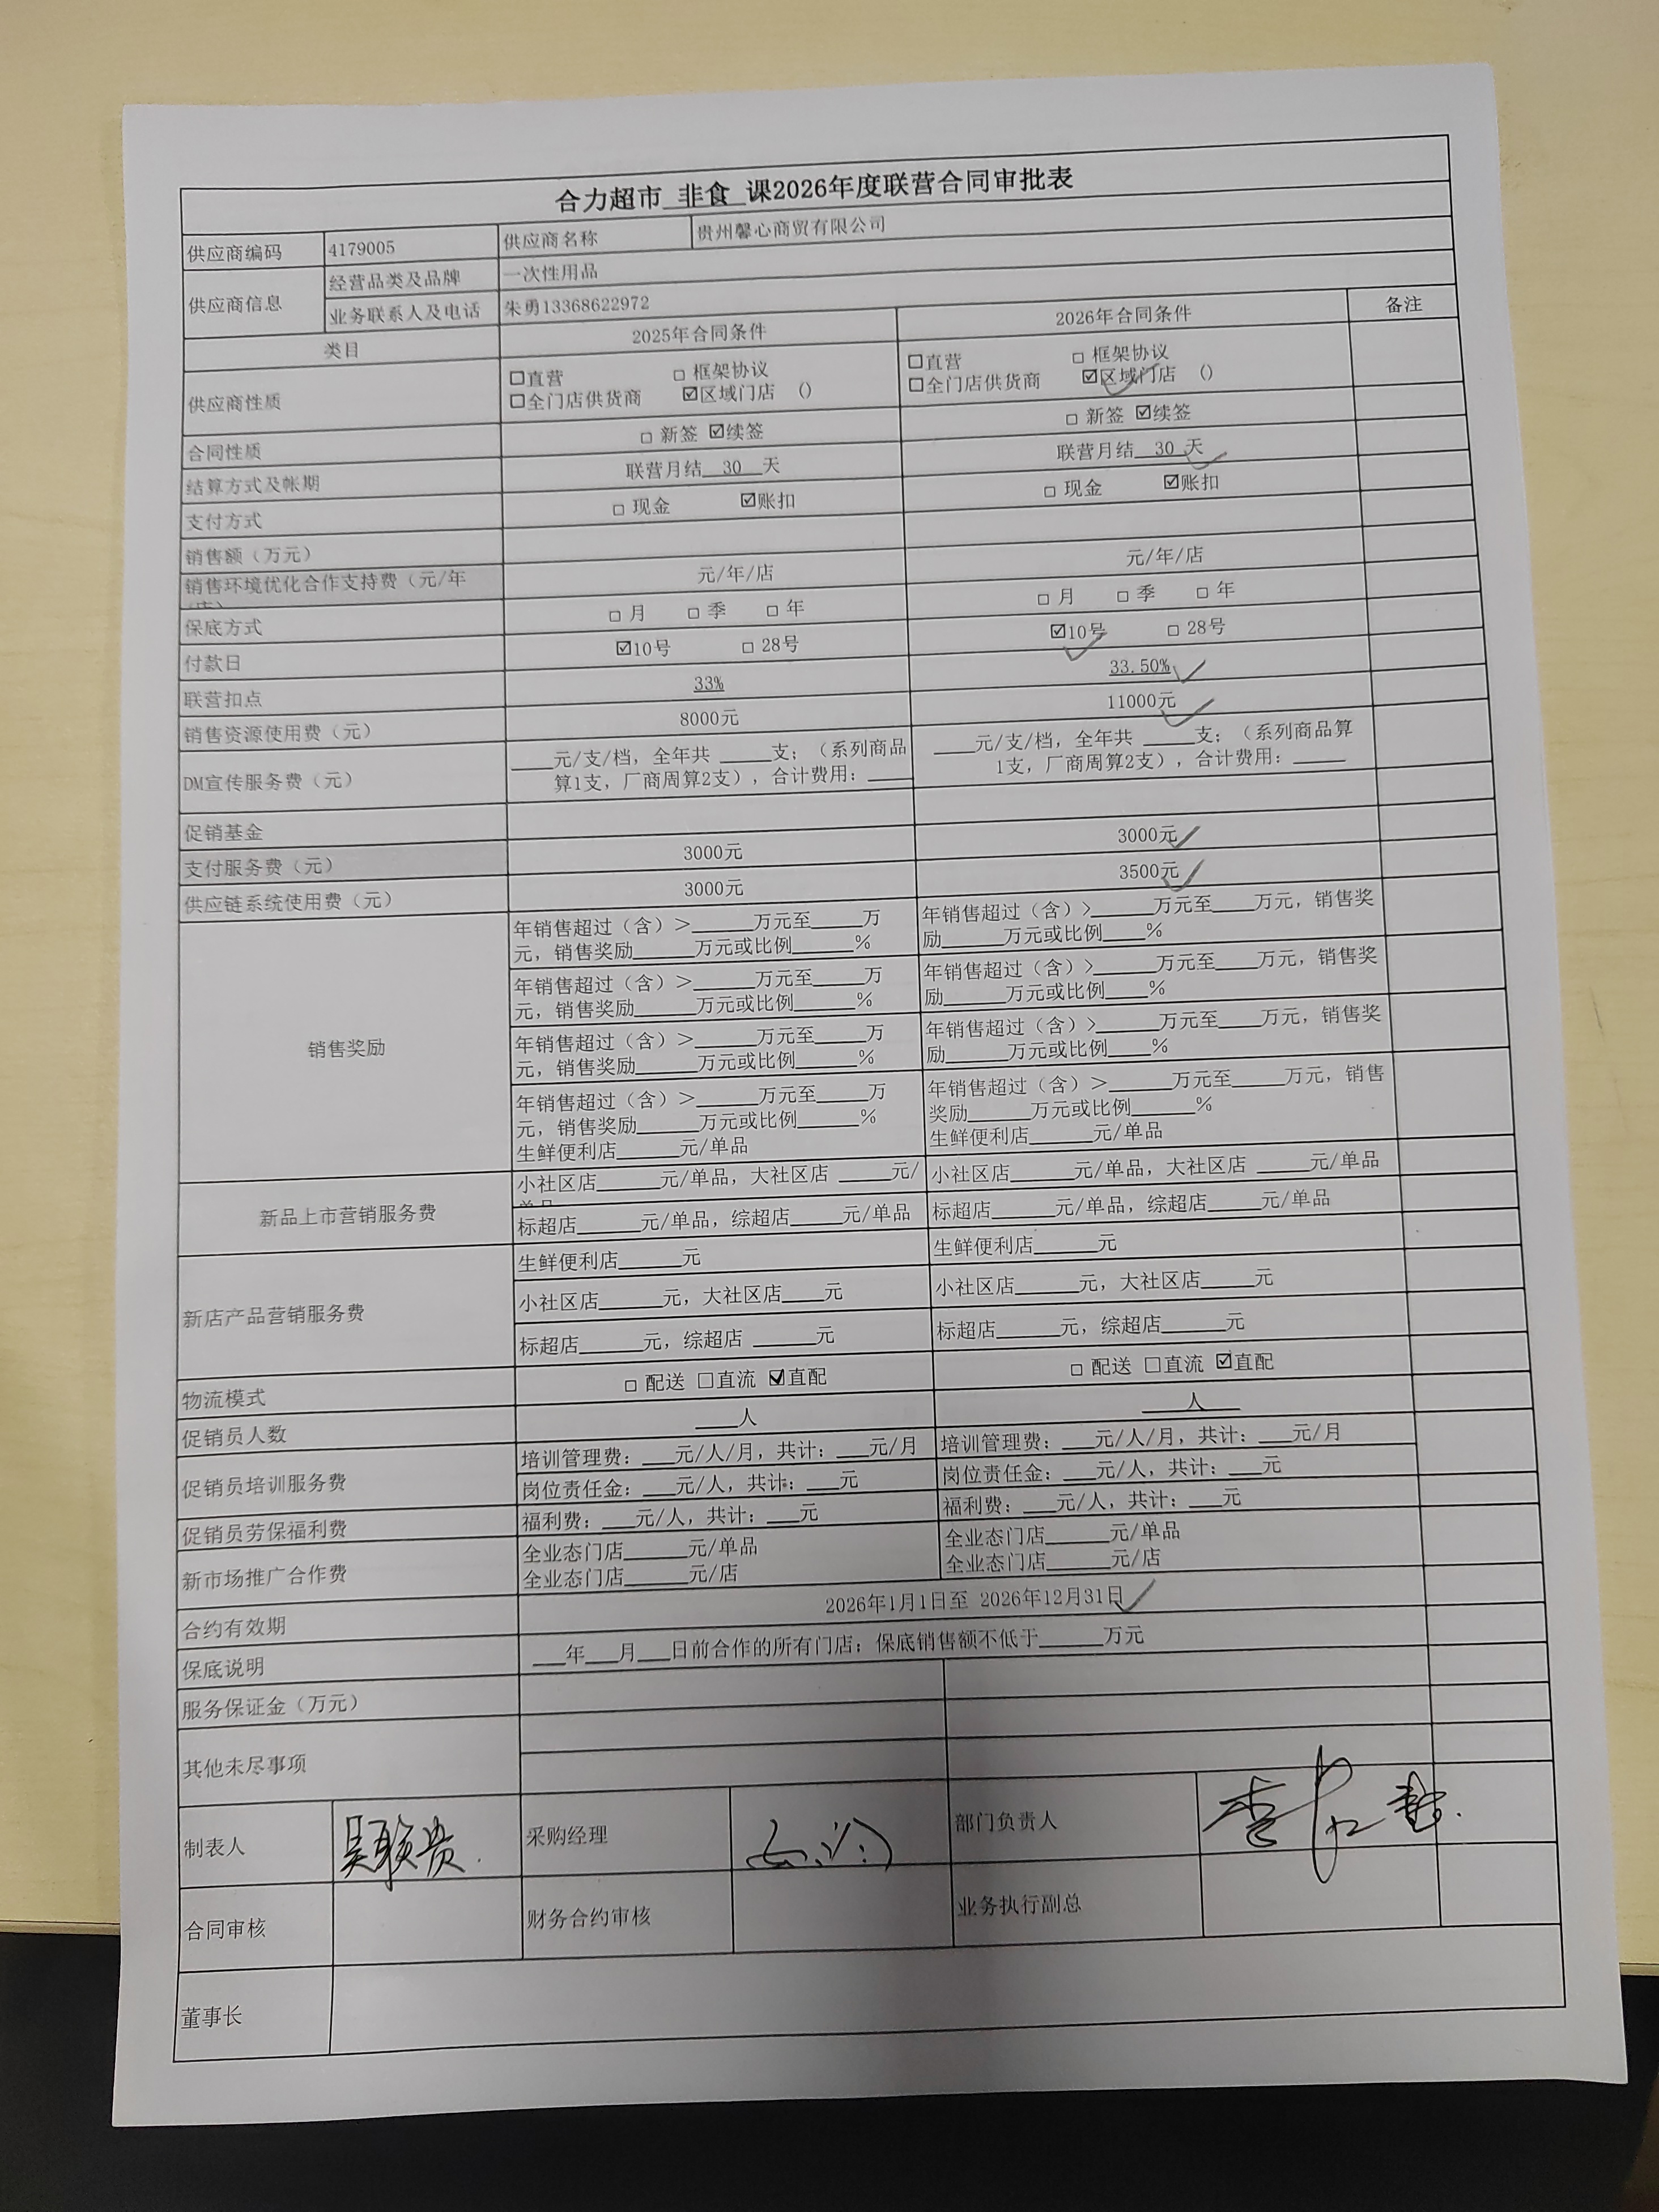 合力超市 非食 课2026年度联营合同审批表
供应商编码 4179005 供应商名称 贵州馨心商贸有限公司
供应商信息 经营品类及品牌 一次性用品
业务联系人及电话 朱勇13368622972
类目 2025年合同条件 2026年合同条件 备注
供应商性质 □直营 □ 框架协议 □直营 □ 框架协议
□全门店供货商 ☑区域门店 () □全门店供货商 ☑区域门店 ()
合同性质 □ 新签 ☑续签 □ 新签 ☑续签
结算方式及帐期 联营月结__30__天 联营月结__30__天
支付方式 □ 现金 ☑账扣 □ 现金 ☑账扣
销售额（万元）
销售环境优化合作支持费（元/年 元/年/店 元/年/店
保底方式 □ 月 □ 季 □ 年 □ 月 □ 季 □ 年
付款日 ☑10号 □ 28号 ☑10号 □ 28号
联营扣点 33% 33.50%
销售资源使用费（元） 8000元 11000元
DM宣传服务费（元） ____元/支/档，全年共 _____支；（系列商品 ____元/支/档，全年共 _____支；（系列商品算
算1支，厂商周算2支），合计费用：____ 1支，厂商周算2支），合计费用：_____
促销基金
支付服务费（元） 3000元 3000元
供应链系统使用费（元） 3000元 3500元
销售奖励 年销售超过（含）>______万元至_____万 年销售超过（含）>______万元至____万元，销售奖
元，销售奖励______万元或比例______% 励______万元或比例____%
年销售超过（含）>______万元至_____万 年销售超过（含）>______万元至____万元，销售奖
元，销售奖励______万元或比例______% 励______万元或比例____%
年销售超过（含）>______万元至_____万 年销售超过（含）>______万元至____万元，销售奖
元，销售奖励______万元或比例______% 励______万元或比例____%
年销售超过（含）>______万元至_____万 年销售超过（含）>______万元至_____万元，销售
元，销售奖励______万元或比例______% 奖励______万元或比例______%
生鲜便利店______元/单品 生鲜便利店______元/单品
新品上市营销服务费 小社区店______元/单品，大社区店 _____元/ 小社区店______元/单品，大社区店 _____元/单品
标超店______元/单品，综超店_____元/单品 标超店______元/单品，综超店_____元/单品
新店产品营销服务费 生鲜便利店______元 生鲜便利店______元
小社区店______元，大社区店____元 小社区店______元，大社区店_____元
标超店______元，综超店 ______元 标超店______元，综超店______元
物流模式 □ 配送 □直流 ☑直配 □ 配送 □直流 ☑直配
促销员人数 ____人 ____人
促销员培训服务费 培训管理费：___元/人/月，共计：___元/月 培训管理费：___元/人/月，共计：___元/月
岗位责任金：___元/人，共计：___元 岗位责任金：___元/人，共计：___元
促销员劳保福利费 福利费：___元/人，共计：___元 福利费：___元/人，共计：___元
新市场推广合作费 全业态门店______元/单品 全业态门店______元/单品
全业态门店______元/店 全业态门店______元/店
合约有效期 2026年1月1日至 2026年12月31日
保底说明 ___年___月___日前合作的所有门店；保底销售额不低于______万元
服务保证金（万元）
其他未尽事项
制表人 吴联贵. 采购经理 部门负责人
合同审核 财务合约审核 业务执行副总
董事长